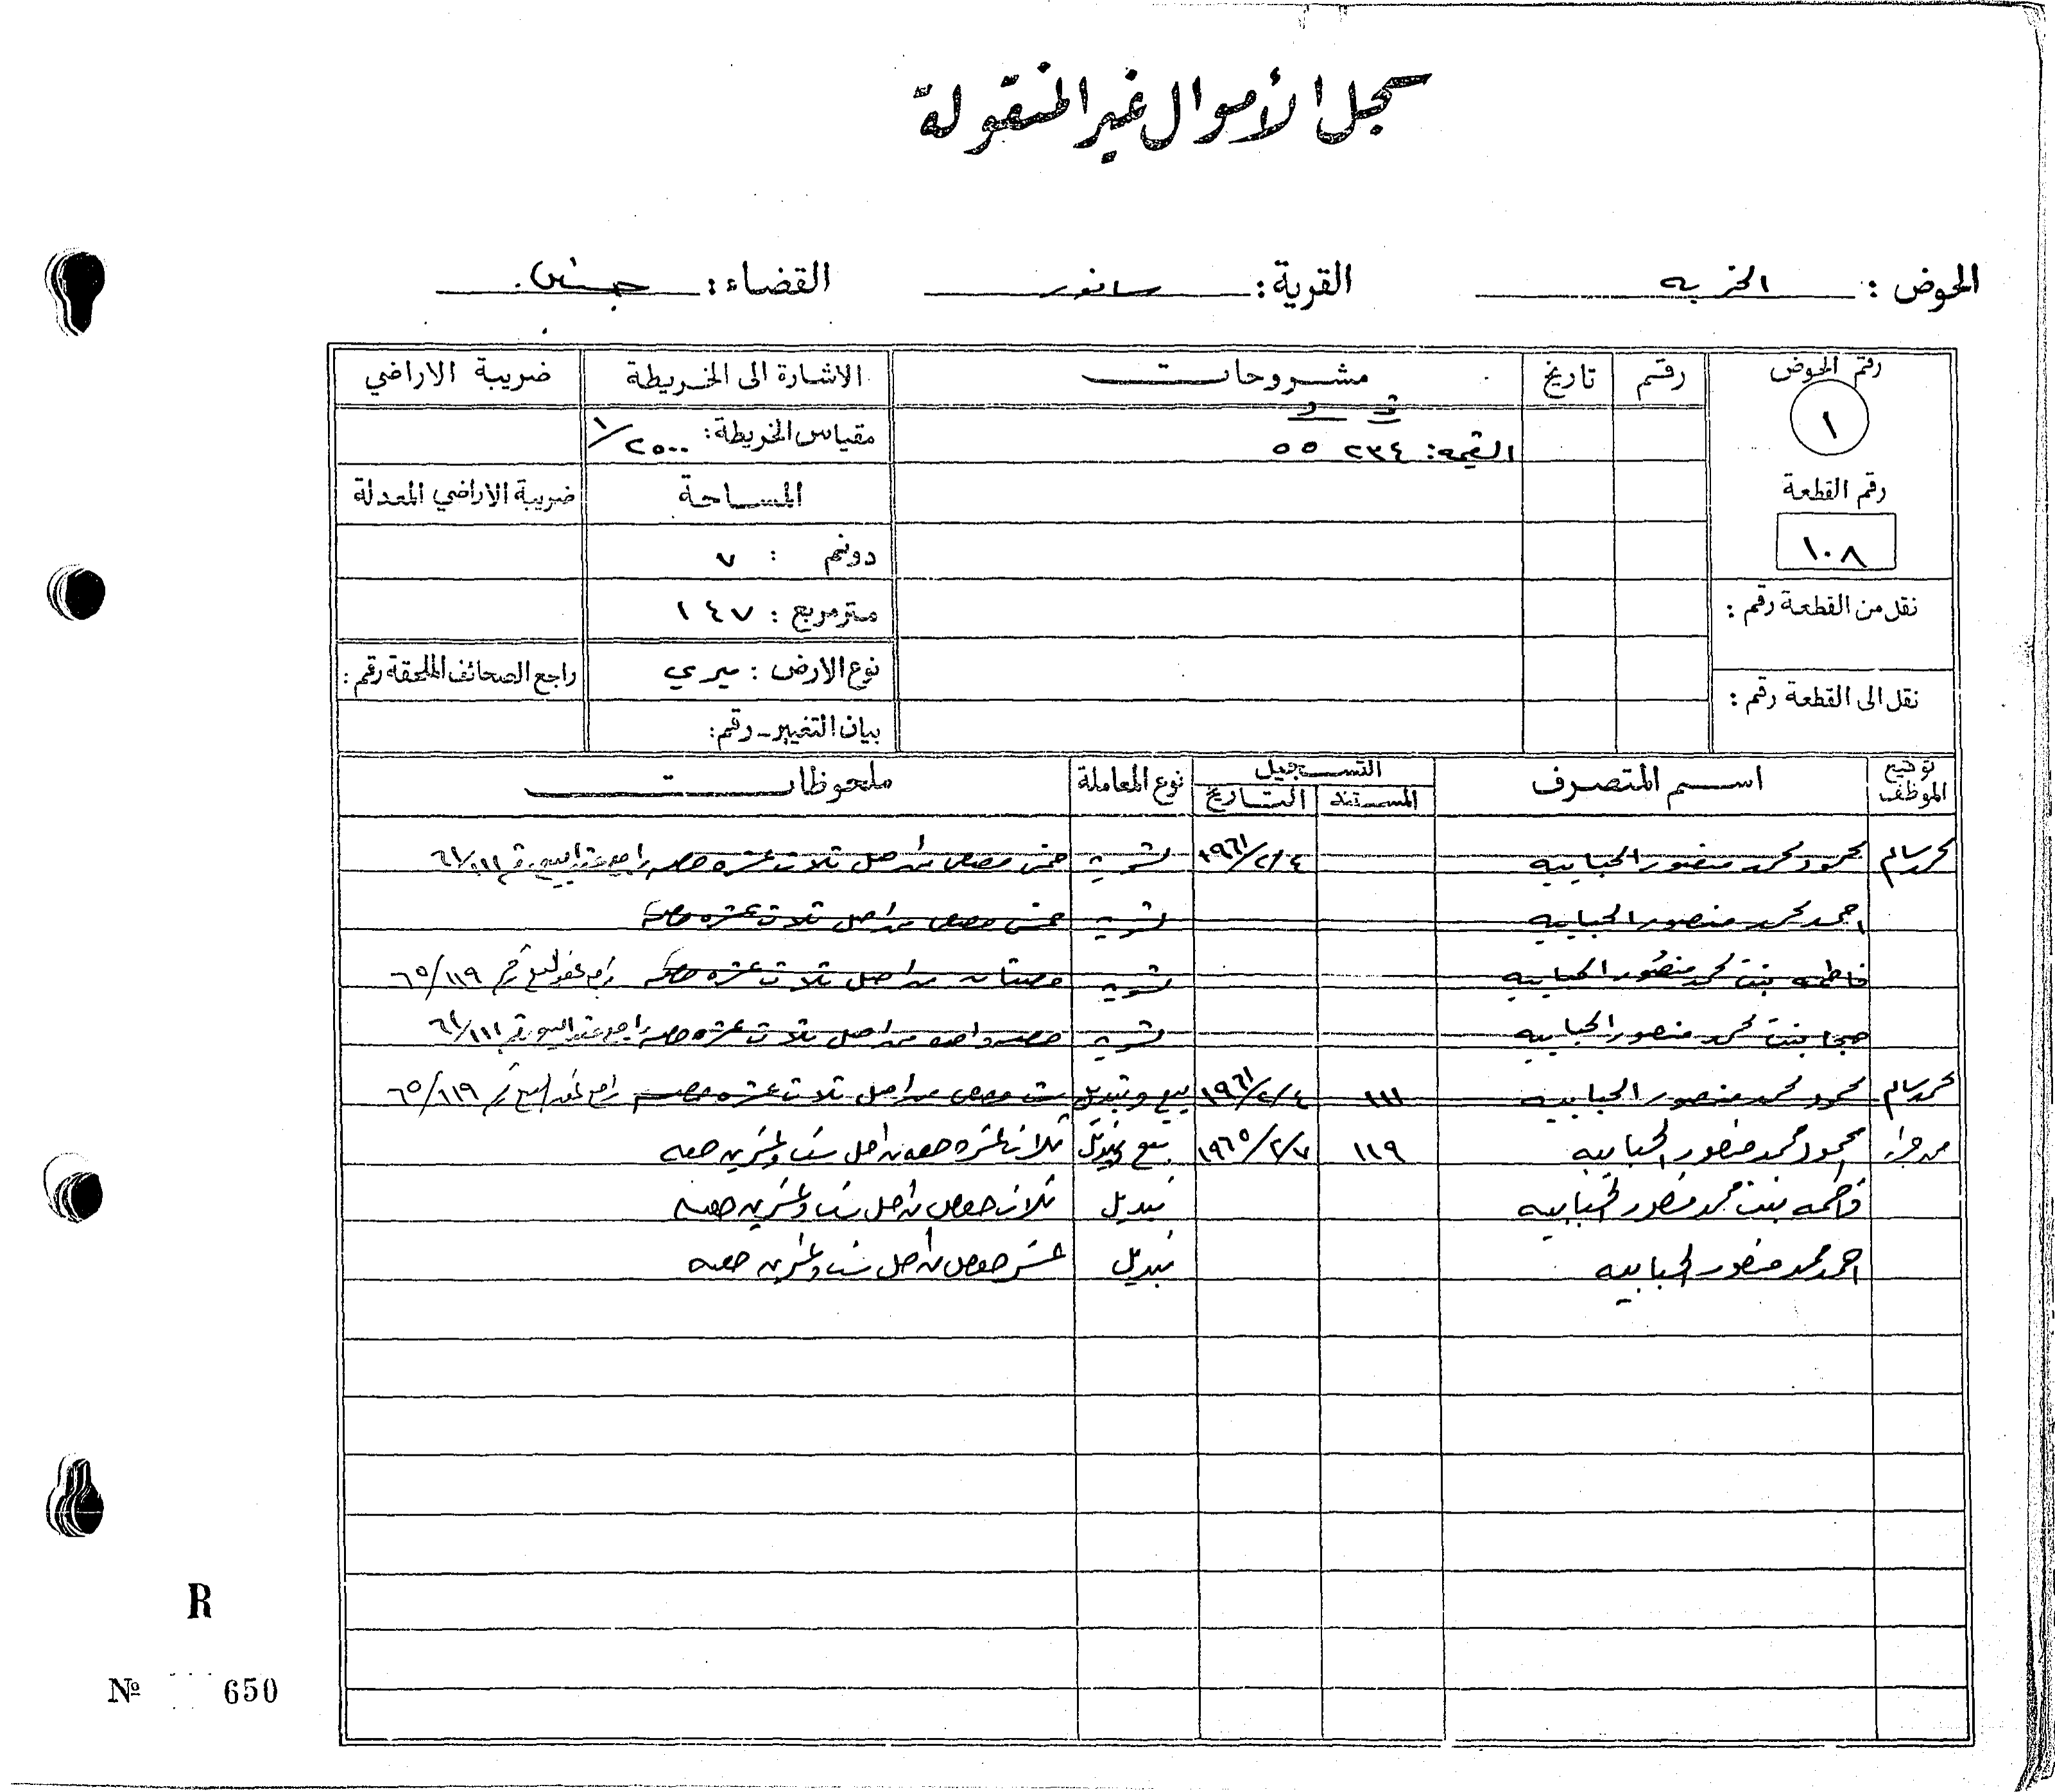 سجل الأموال غير المنقولة
الحوض : الخربه القرية : سانور القضاء : جنين
رقم الحوض رقم تاريخ مشروحات الاشارة الى الخريطة ضريبة الاراضي
١ القيمة: ٢٣٤ ٥٥ مقياس الخريطة: ١/٢٥٠٠
رقم القطعة المساحة ضريبة الاراضي المعدلة
١٠٨ دونم : ٧
نقل من القطعة رقم : متر مربع : ١٤٧
نوع الارض : ميري راجع الصحائف الملحقة رقم :
نقل الى القطعة رقم : بيان التغيير - رقم:
توقيع الموظف اسم المتصرف التسجيل نوع المعاملة ملحوظات
المستند التاريخ
محمد سالم محمود محمد منصور الحبايبه ١٩٦١/٢/٤ تسوية خمس حصص من اصل ثلاث عشره حصه راجع عقد البيع رقم ٦١/١١١
احمد محمد منصور الحبايبه تسوية خمس حصص من اصل ثلاث عشره حصه
فاطمه بنت محمد منصور الحبايبه تسوية حصتان من اصل ثلاث عشره حصه راجع عقد البيع رقم ٦٥/١١٩
بنت محمد منصور الحبايبه تسوية حصه واحده من اصل ثلاث عشره حصه راجع عقد البيع رقم ٦١/١١١
محمد سالم محمود محمد منصور الحبايبه ١١١ ١٩٦١/٢/٤ بيع وتبديل ست حصص من اصل ثلاث عشره حصه راجع عقد البيع رقم ٦٥/١١٩
محمود محمد منصور الحبايبه ١١٩ ١٩٦٥/٢/٧ بيع وتبديل ثلاث عشره حصه من اصل ست وعشرين حصه
فاطمه بنت محمد منصور الحبايبه تبديل ثلاث حصص من اصل ست وعشرين حصه
احمد محمد منصور الحبايبه تبديل عشر حصص من اصل ست وعشرين حصه
R
№ 650